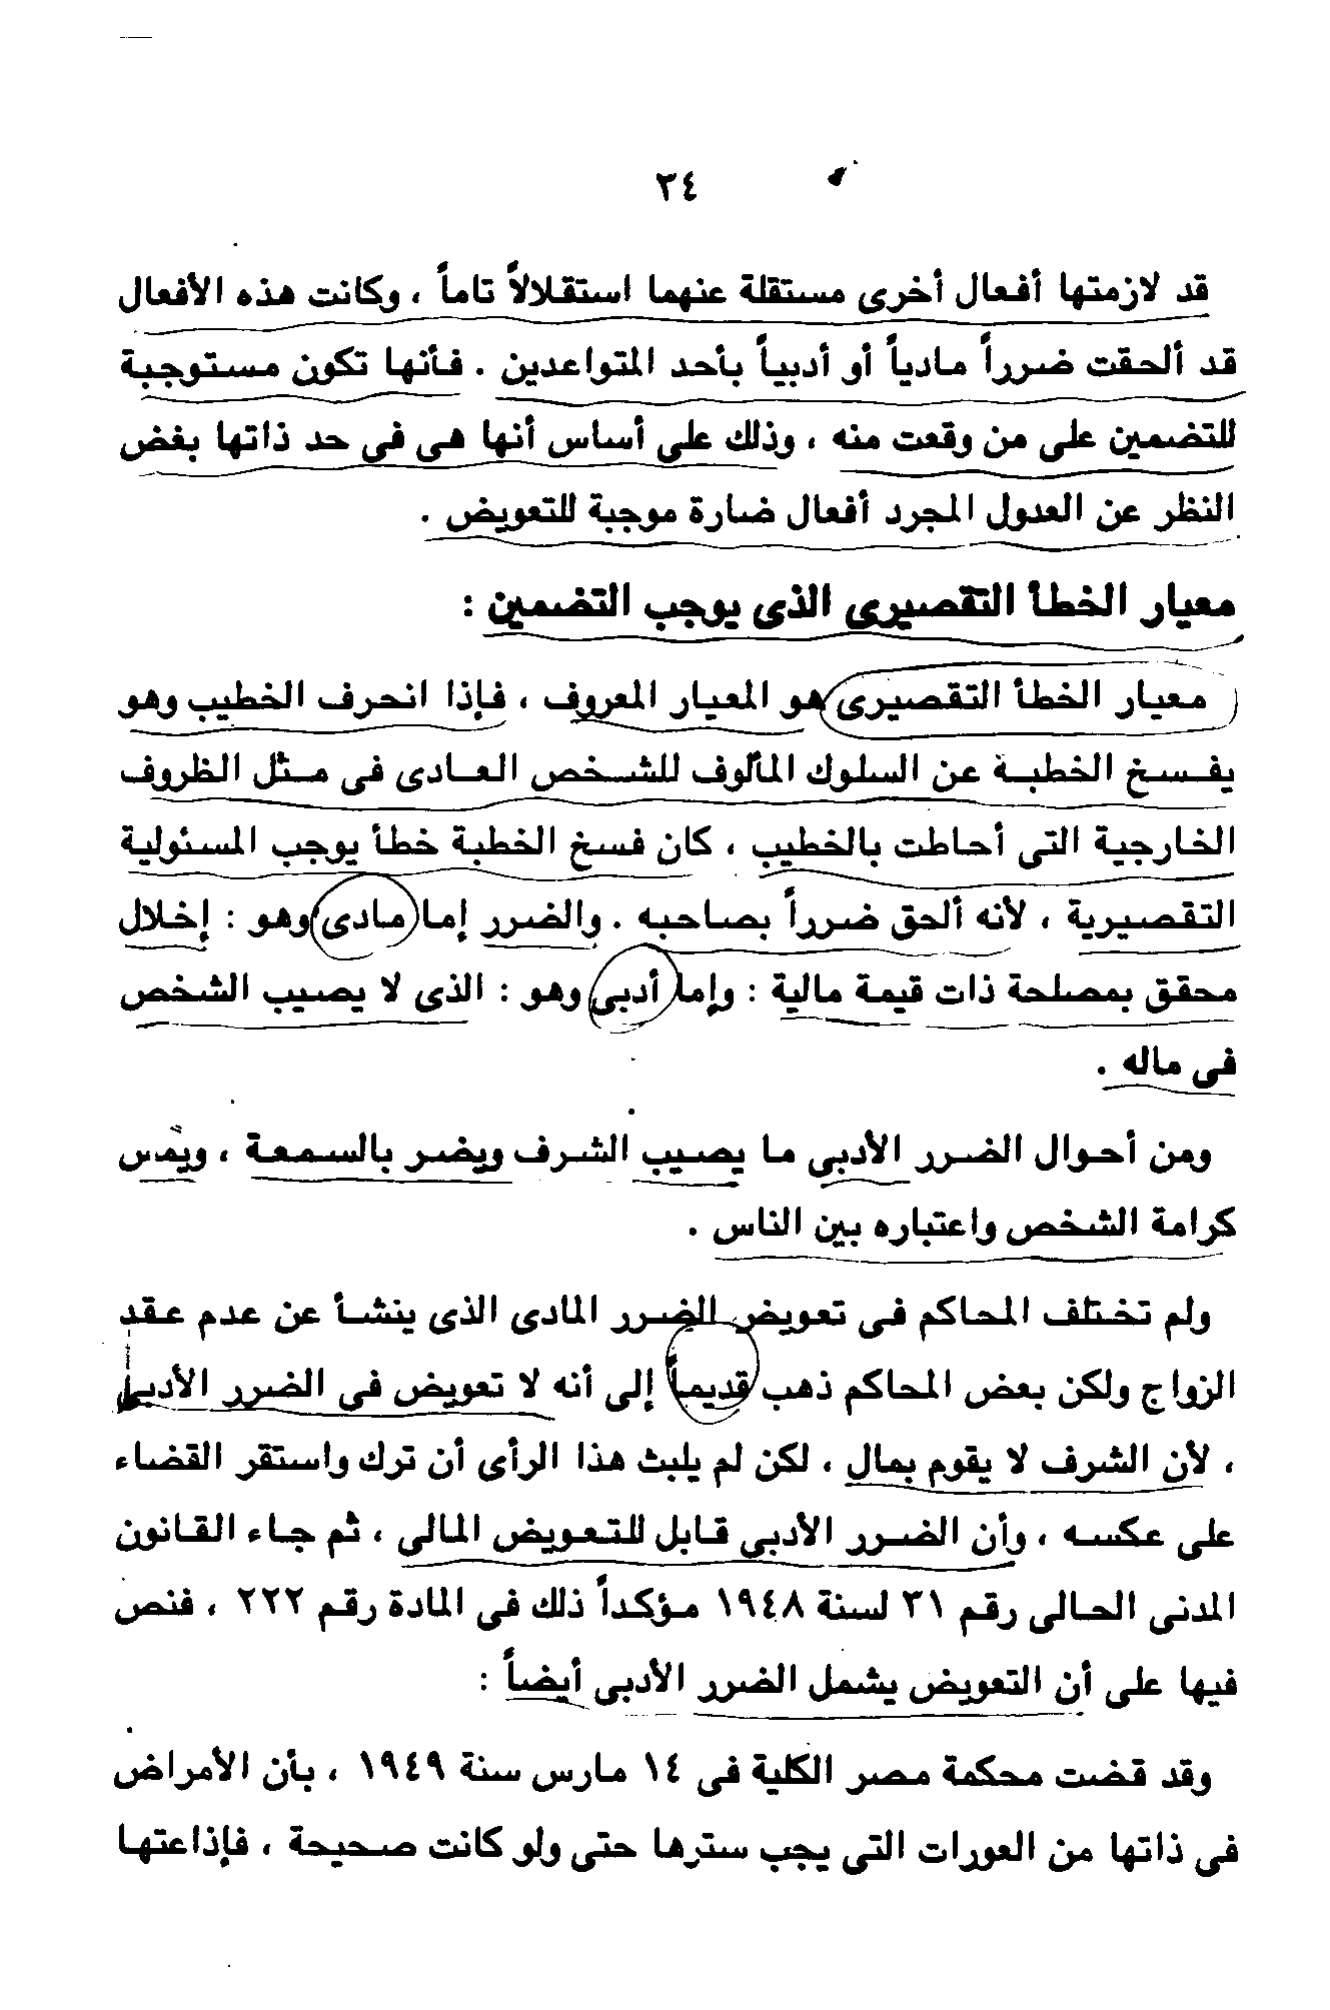 ٣٤
قد لازمتها أفعال أخرى مستقلة عنهما استقلالاً تاماً ، وكانت هذه الأفعال
قد ألحقت ضرراً مادياً أو أدبياً بأحد المتواعدين . فأنها تكون مستوجبة
للتضمين على من وقعت منه ، وذلك على أساس أنها هى فى حد ذاتها بغض
النظر عن العدول المجرد أفعال ضارة موجبة للتعويض .
معيار الخطأ التقصيرى الذى يوجب التضمين :
معيار الخطأ التقصيرى هو المعيار المعروف ، فإذا انحرف الخطيب وهو
يفسخ الخطبة عن السلوك المألوف للشخص العادى فى مثل الظروف
الخارجية التى أحاطت بالخطيب ، كان فسخ الخطبة خطأ يوجب المسئولية
التقصيرية ، لأنه ألحق ضرراً بصاحبه . والضرر إما مادى وهو : إخلال
محقق بمصلحة ذات قيمة مالية : وإما أدبى وهو : الذى لا يصيب الشخص
فى ماله .
ومن أحوال الضرر الأدبى ما يصيب الشرف ويضر بالسمعة ، ويمس
كرامة الشخص واعتباره بين الناس .
ولم تختلف المحاكم فى تعويض الضرر المادى الذى ينشأ عن عدم عقد
الزواج ولكن بعض المحاكم ذهب قديماً إلى أنه لا تعويض فى الضرر الأدبى
، لأن الشرف لا يقوم بمال ، لكن لم يلبث هذا الرأى أن ترك واستقر القضاء
على عكسه ، وأن الضرر الأدبى قابل للتعويض المالى ، ثم جاء القانون
المدنى الحالى رقم ٣١ لسنة ١٩٤٨ مؤكداً ذلك فى المادة رقم ٢٢٢ ، فنص
فيها على أن التعويض يشمل الضرر الأدبى أيضاً :
وقد قضت محكمة مصر الكلية فى ١٤ مارس سنة ١٩٤٩ ، بأن الأمراض
فى ذاتها من العورات التى يجب سترها حتى ولو كانت صحيحة ، فإذاعتها